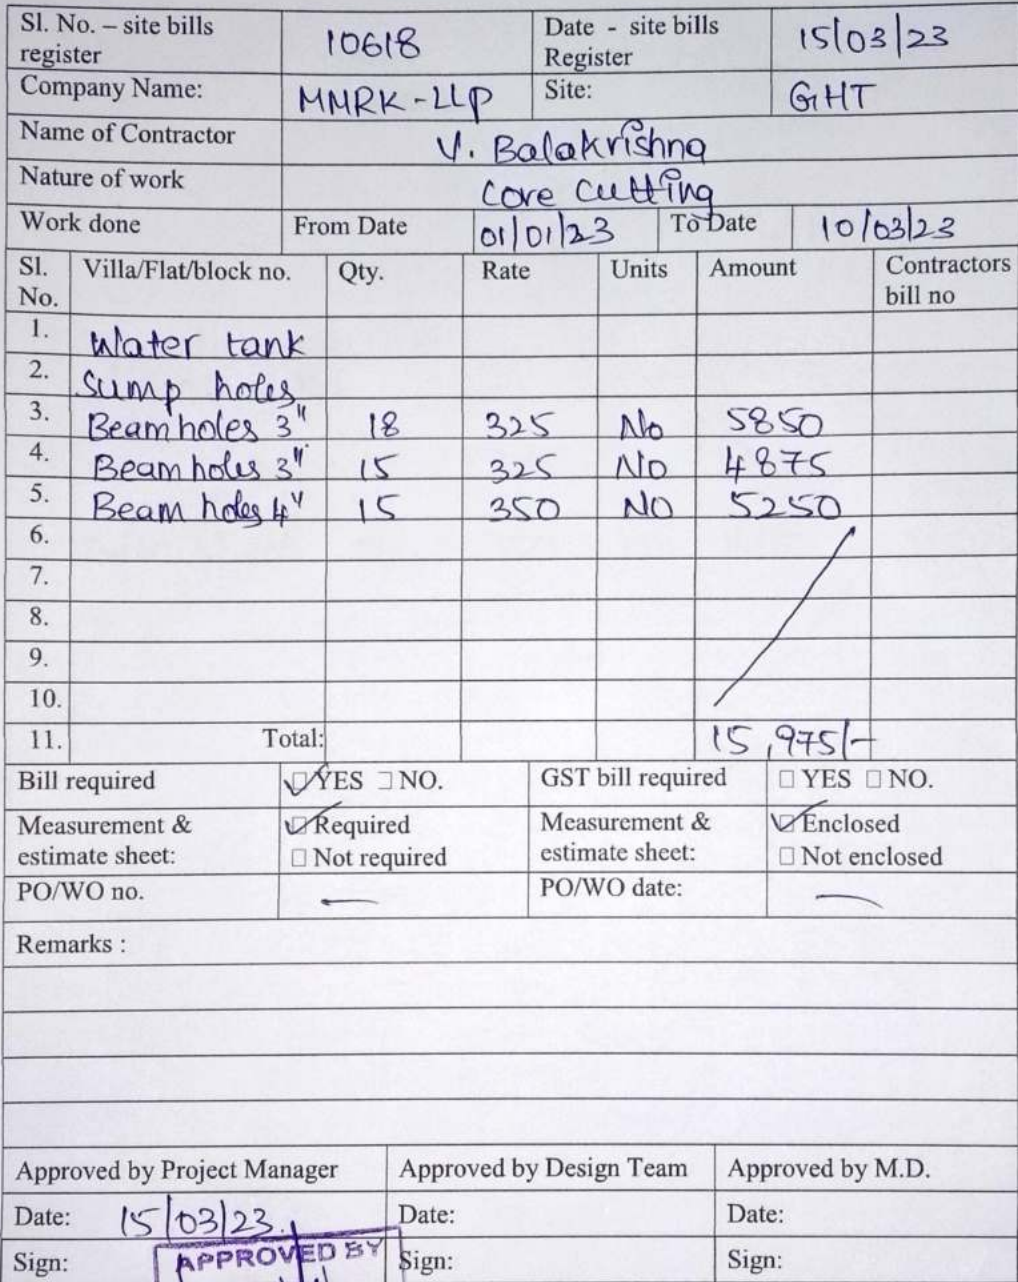 Sl. No. – site bills register 10618 Date - site bills Register 15/03/23
Company Name: MMRK-LLP Site: GHT
Name of Contractor V. Balakrishna
Nature of work Core Cutting
Work done From Date 01/01/23 To Date 10/03/23
Sl. No. Villa/Flat/block no. Qty. Rate Units Amount Contractors bill no
1. Water tank
2. Sump holes
3. Beam holes 3" 18 325 No 5850
4. Beam holes 3" 15 325 No 4875
5. Beam holes 4" 15 350 NO 5250
6.
7.
8.
9.
10.
11. Total: 15,975/-
Bill required ☑ YES ☐ NO. GST bill required ☐ YES ☐ NO.
Measurement & estimate sheet: ☑ Required ☐ Not required Measurement & estimate sheet: ☑ Enclosed ☐ Not enclosed
PO/WO no. — PO/WO date: —
Remarks :
Approved by Project Manager Approved by Design Team Approved by M.D.
Date: 15/03/23 Date: Date:
Sign: APPROVED BY Sign: Sign: